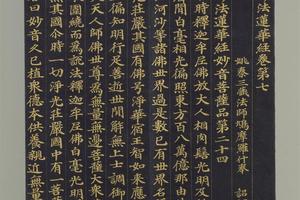 法蓮華經卷第七
姚秦三藏法師鳩摩羅什奉 詔
法蓮華經妙音菩薩品第二十四
時釋迦牟尼佛放大人相肉髻光明及
間白毫相光徧照東方百八萬億那由
河沙等諸佛世界過是數已有世界名
光莊嚴其國有佛号淨華宿王智如來應
徧知明行足善逝世間解無上士調御
人師佛世尊為無量無邊菩薩大衆
圍繞而為說法釋迦牟尼佛白毫光明
其國尒時一切淨光莊嚴國中有一菩薩
曰妙音久已植衆德本供養親近無量